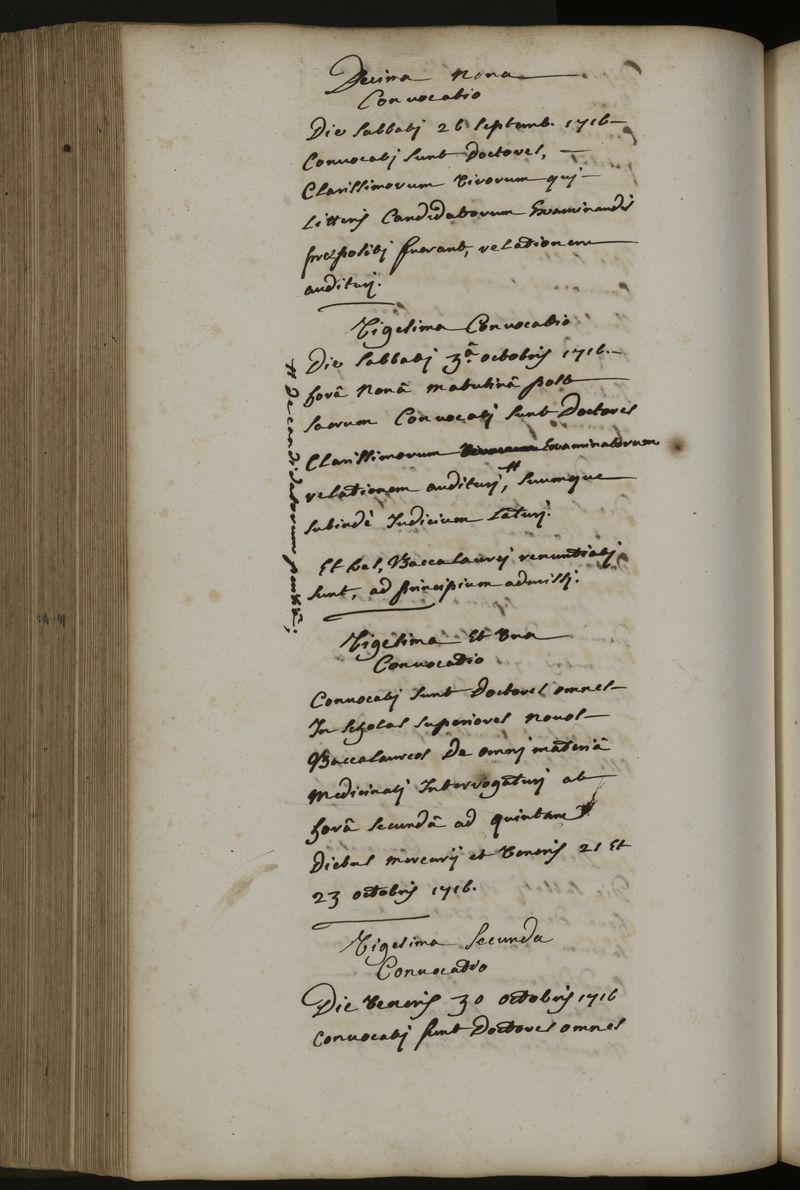 Decima Nona
Convocatio
Die Sabbatj 26 Septemb. 1716
Convocatj Sunt Doctores,
Clarissimorum Virorum quj
Litteris Candidatorum Examinandis
præpositj fuerant, relationem
auditurj.
Vigesima Convocatio
Die Sabbatj 3ª. octobris 1716.
horâ Nonâ matutinâ post
Sacrum Convocatj Sunt Doctores
Clarissimorum Examinatorum
relationem auditurj, # Suumque
Subindè Iudicium Laturj.
# De candidatorum peritiâ;
Et hel, Baccalaurej renuntiatj
Sunt, ad principium admissj.
Vigesima Et Una
Convocatio
Convocatj Sunt Doctores omnes
In Scholas Superiores Novos
Baccalaureos De omnj materiâ
Medicinalj Interrogaturj ab
horâ Secundâ ad quintam
Diebus mercurij et Veneris 21 Et
23 octobris 1716.
Vigesima Secunda
Convocatio
Die Veneris 30 octobris 1716
Convocatj Sunt Doctores omnes